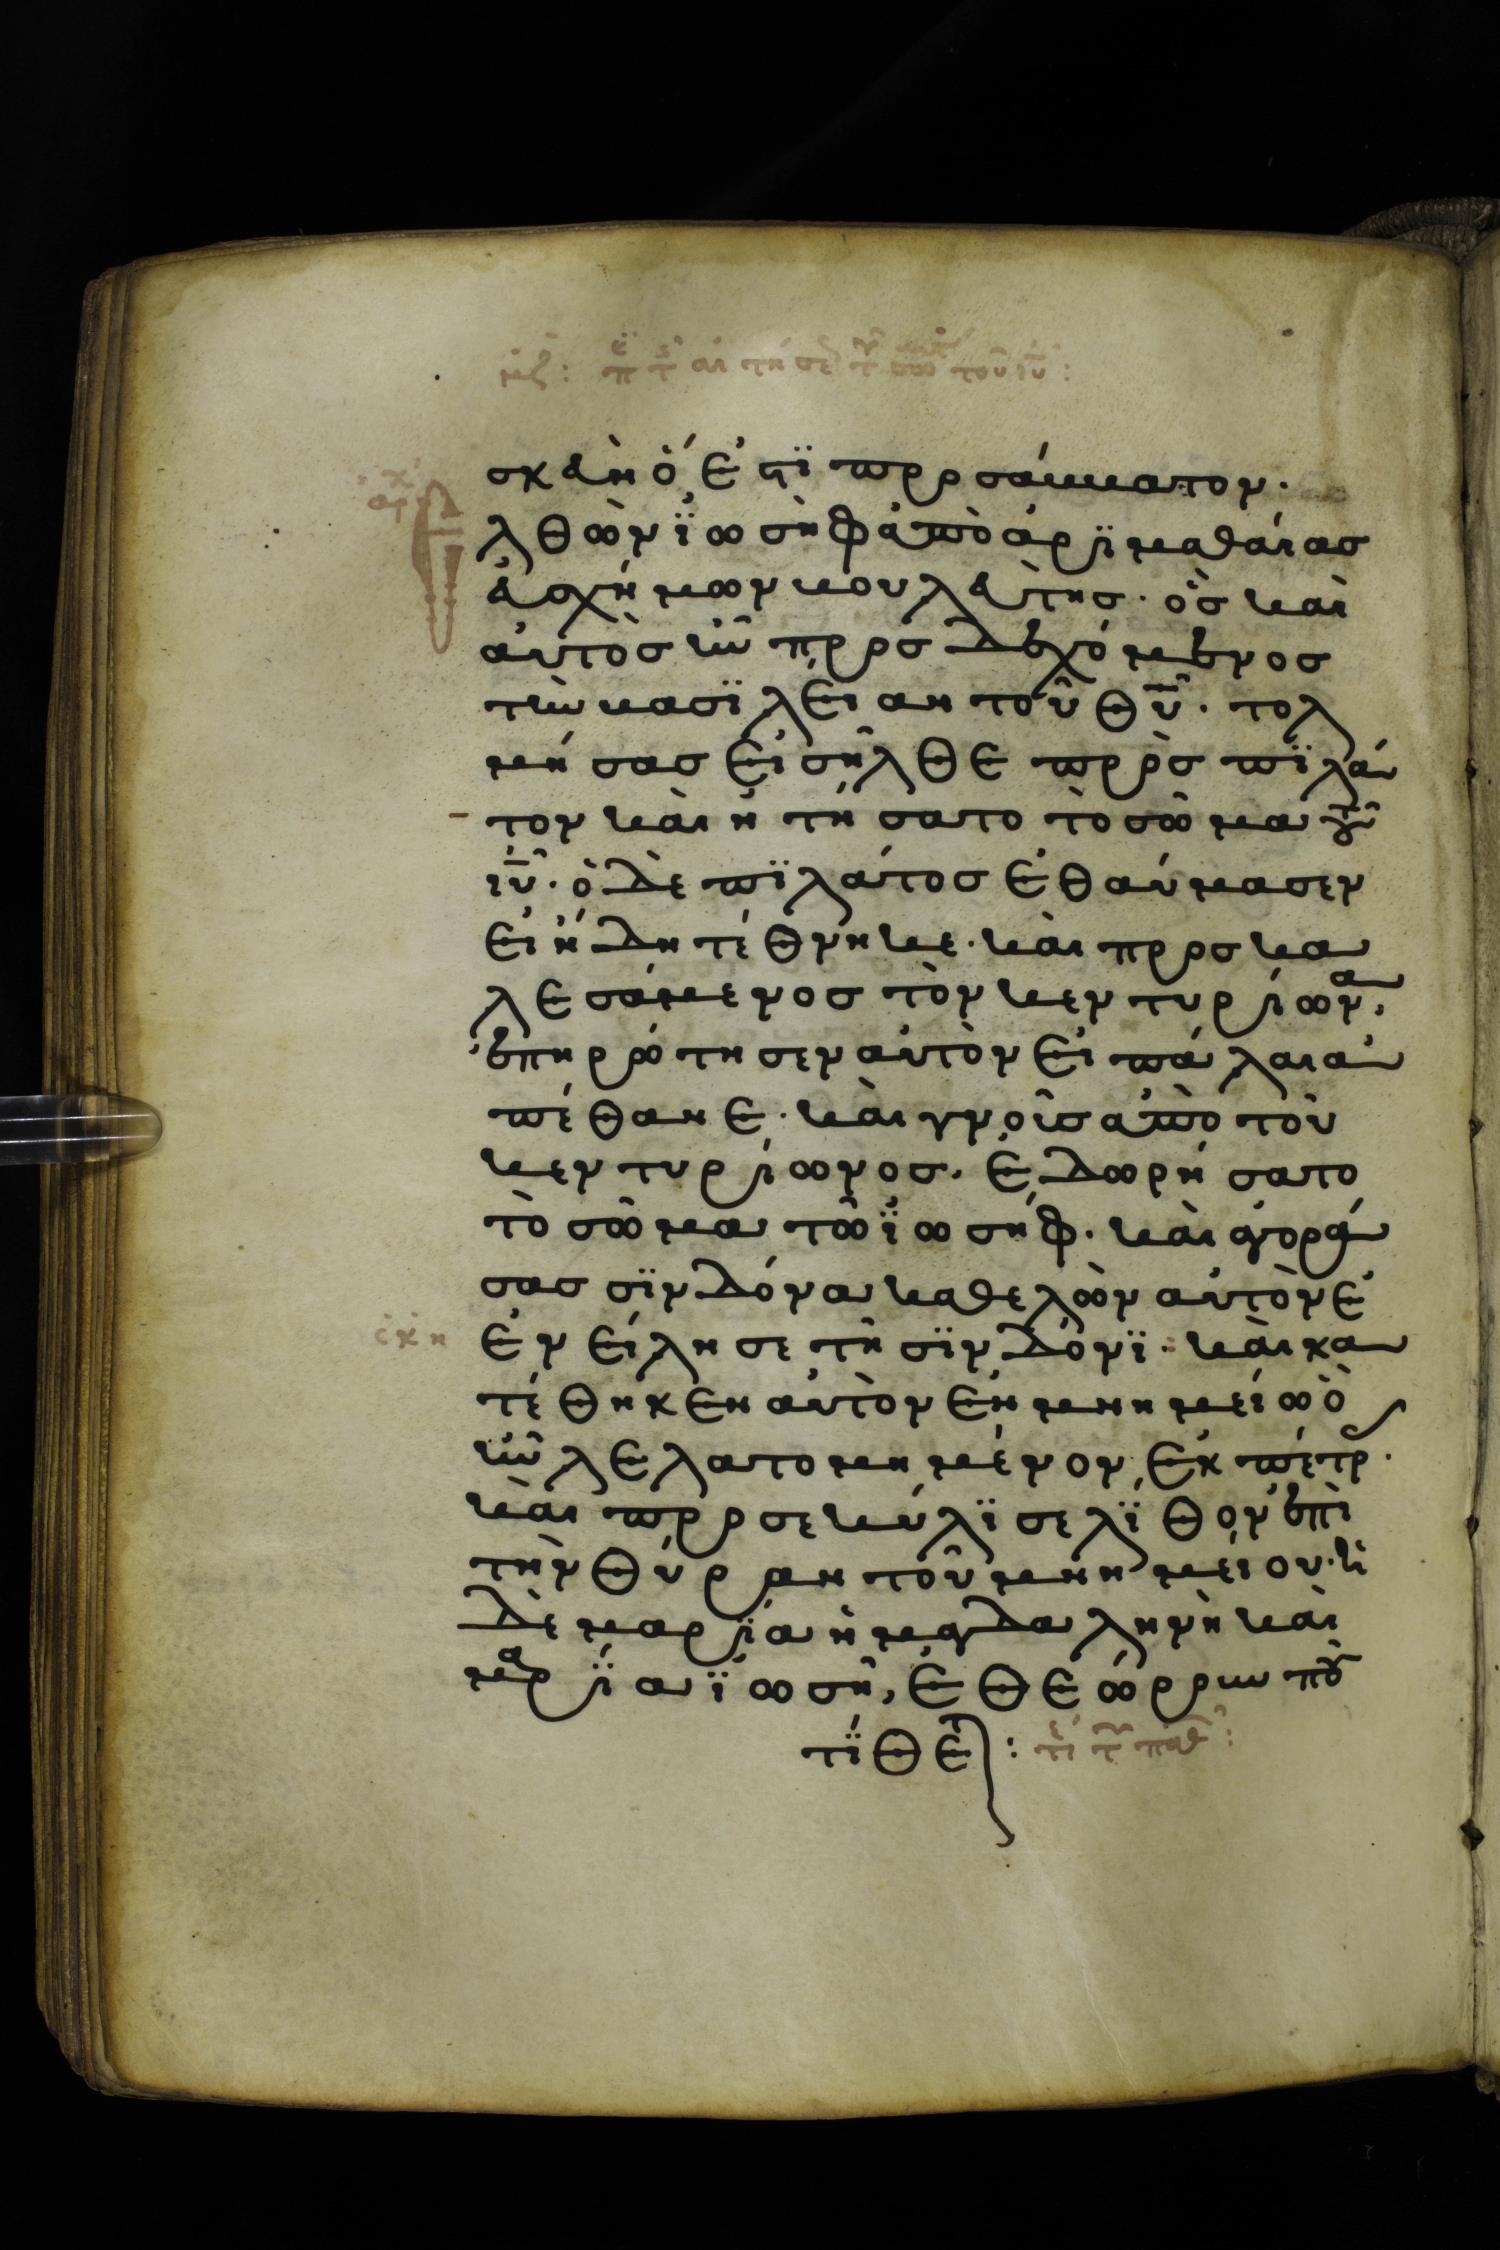 σκευὴ ὅ ἐστϊ προσάββατον·
λθὼν ϊωσὴφ ἀπὸ ἀρϊμαθαίας
εὐσχήμων βουλευτὴς· ὃς καὶ
αὐτὸς ἦν προσδεχόμενος
τὴν βασϊλείαν τοῦ θυ̅· τολ
μήσας εἰσῆλθε πρὸς πϊλά
τον καὶ ἠτήσατο τὸ σῶμα τοῦ
ιυ̅· ὁ δὲ πϊλάτος ἐθαύμασεν
εἰ ἤδη τέθνηκε· καὶ προσκα
λεσάμενος τὸν κεντυρίωνα,
ἐπηρώτησεν αὐτὸν εἰ πάλαι ἀ
πέθανε· καὶ γνοῦς ἀπὸ τοῦ
κεντυρίωνος, ἐδωρήσατο
τὸ σῶμα τῶ ϊωσήφ· καὶ ἀγορά
σας σϊνδόνα καθελὼν αὐτὸν ἐ
ἐνείλησε τῆ σϊνδόνϊ· καὶ κα
τέθηκεν αὐτὸν ἐν μνημείω ὃ
ἦν λελατομημένον ἐκ πέτρ·
καὶ προσεκύλϊσε λϊθον ἐπὶ
τὴν θύραν τοῦ μνημείου· ἡ
δὲ μαρϊα ἡ μαγδαληνὴ καὶ
μαρϊα ϊωσῆ, ἐθεώρουν ποῦ
τϊθετ :